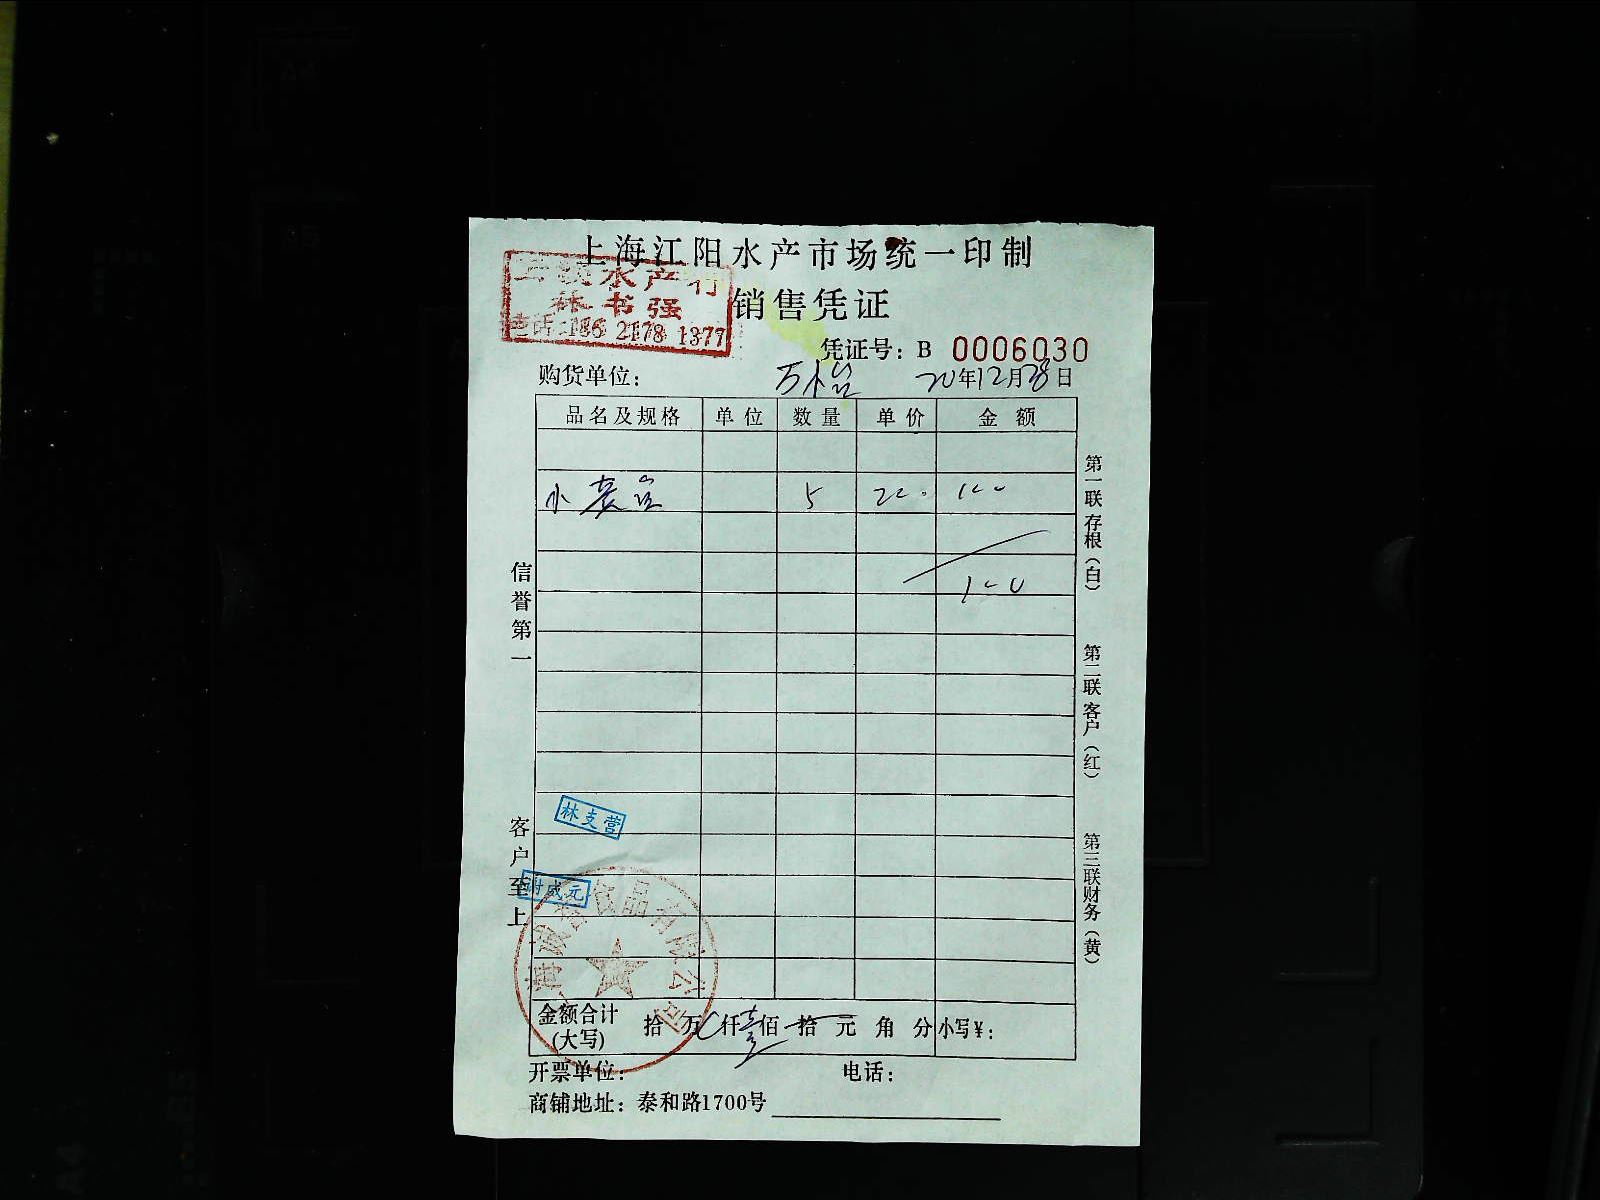 上海江阳水产市场统一印制
水产行
林书强
电话:186 2178 1377
销售凭证
凭证号：B 0006030
购货单位： 20年12月28日
品名及规格 单位 数量 单价 金额
小 5
100
信誉第一
客户至上
第一联存根（白）
第二联客户（红）
第三联财务（黄）
林支营
谢成元
品有限公司
金额合计(大写) 拾 万 仟壹佰 拾 元 角 分 小写¥：
开票单位： 电话：
商铺地址：泰和路1700号